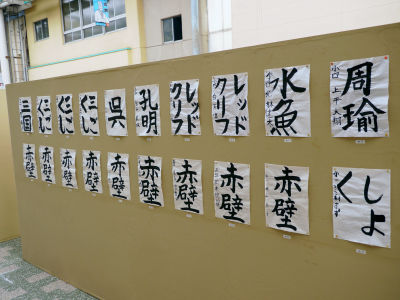 周瑜
水魚
レッド
クリフ
レッド
クリフ
孔明
呉
三ご
くし
三ご
くし
三ご
くし
三国
しょ
く
赤壁
赤壁
赤壁
赤壁
赤壁
赤壁
赤壁
赤壁
赤壁